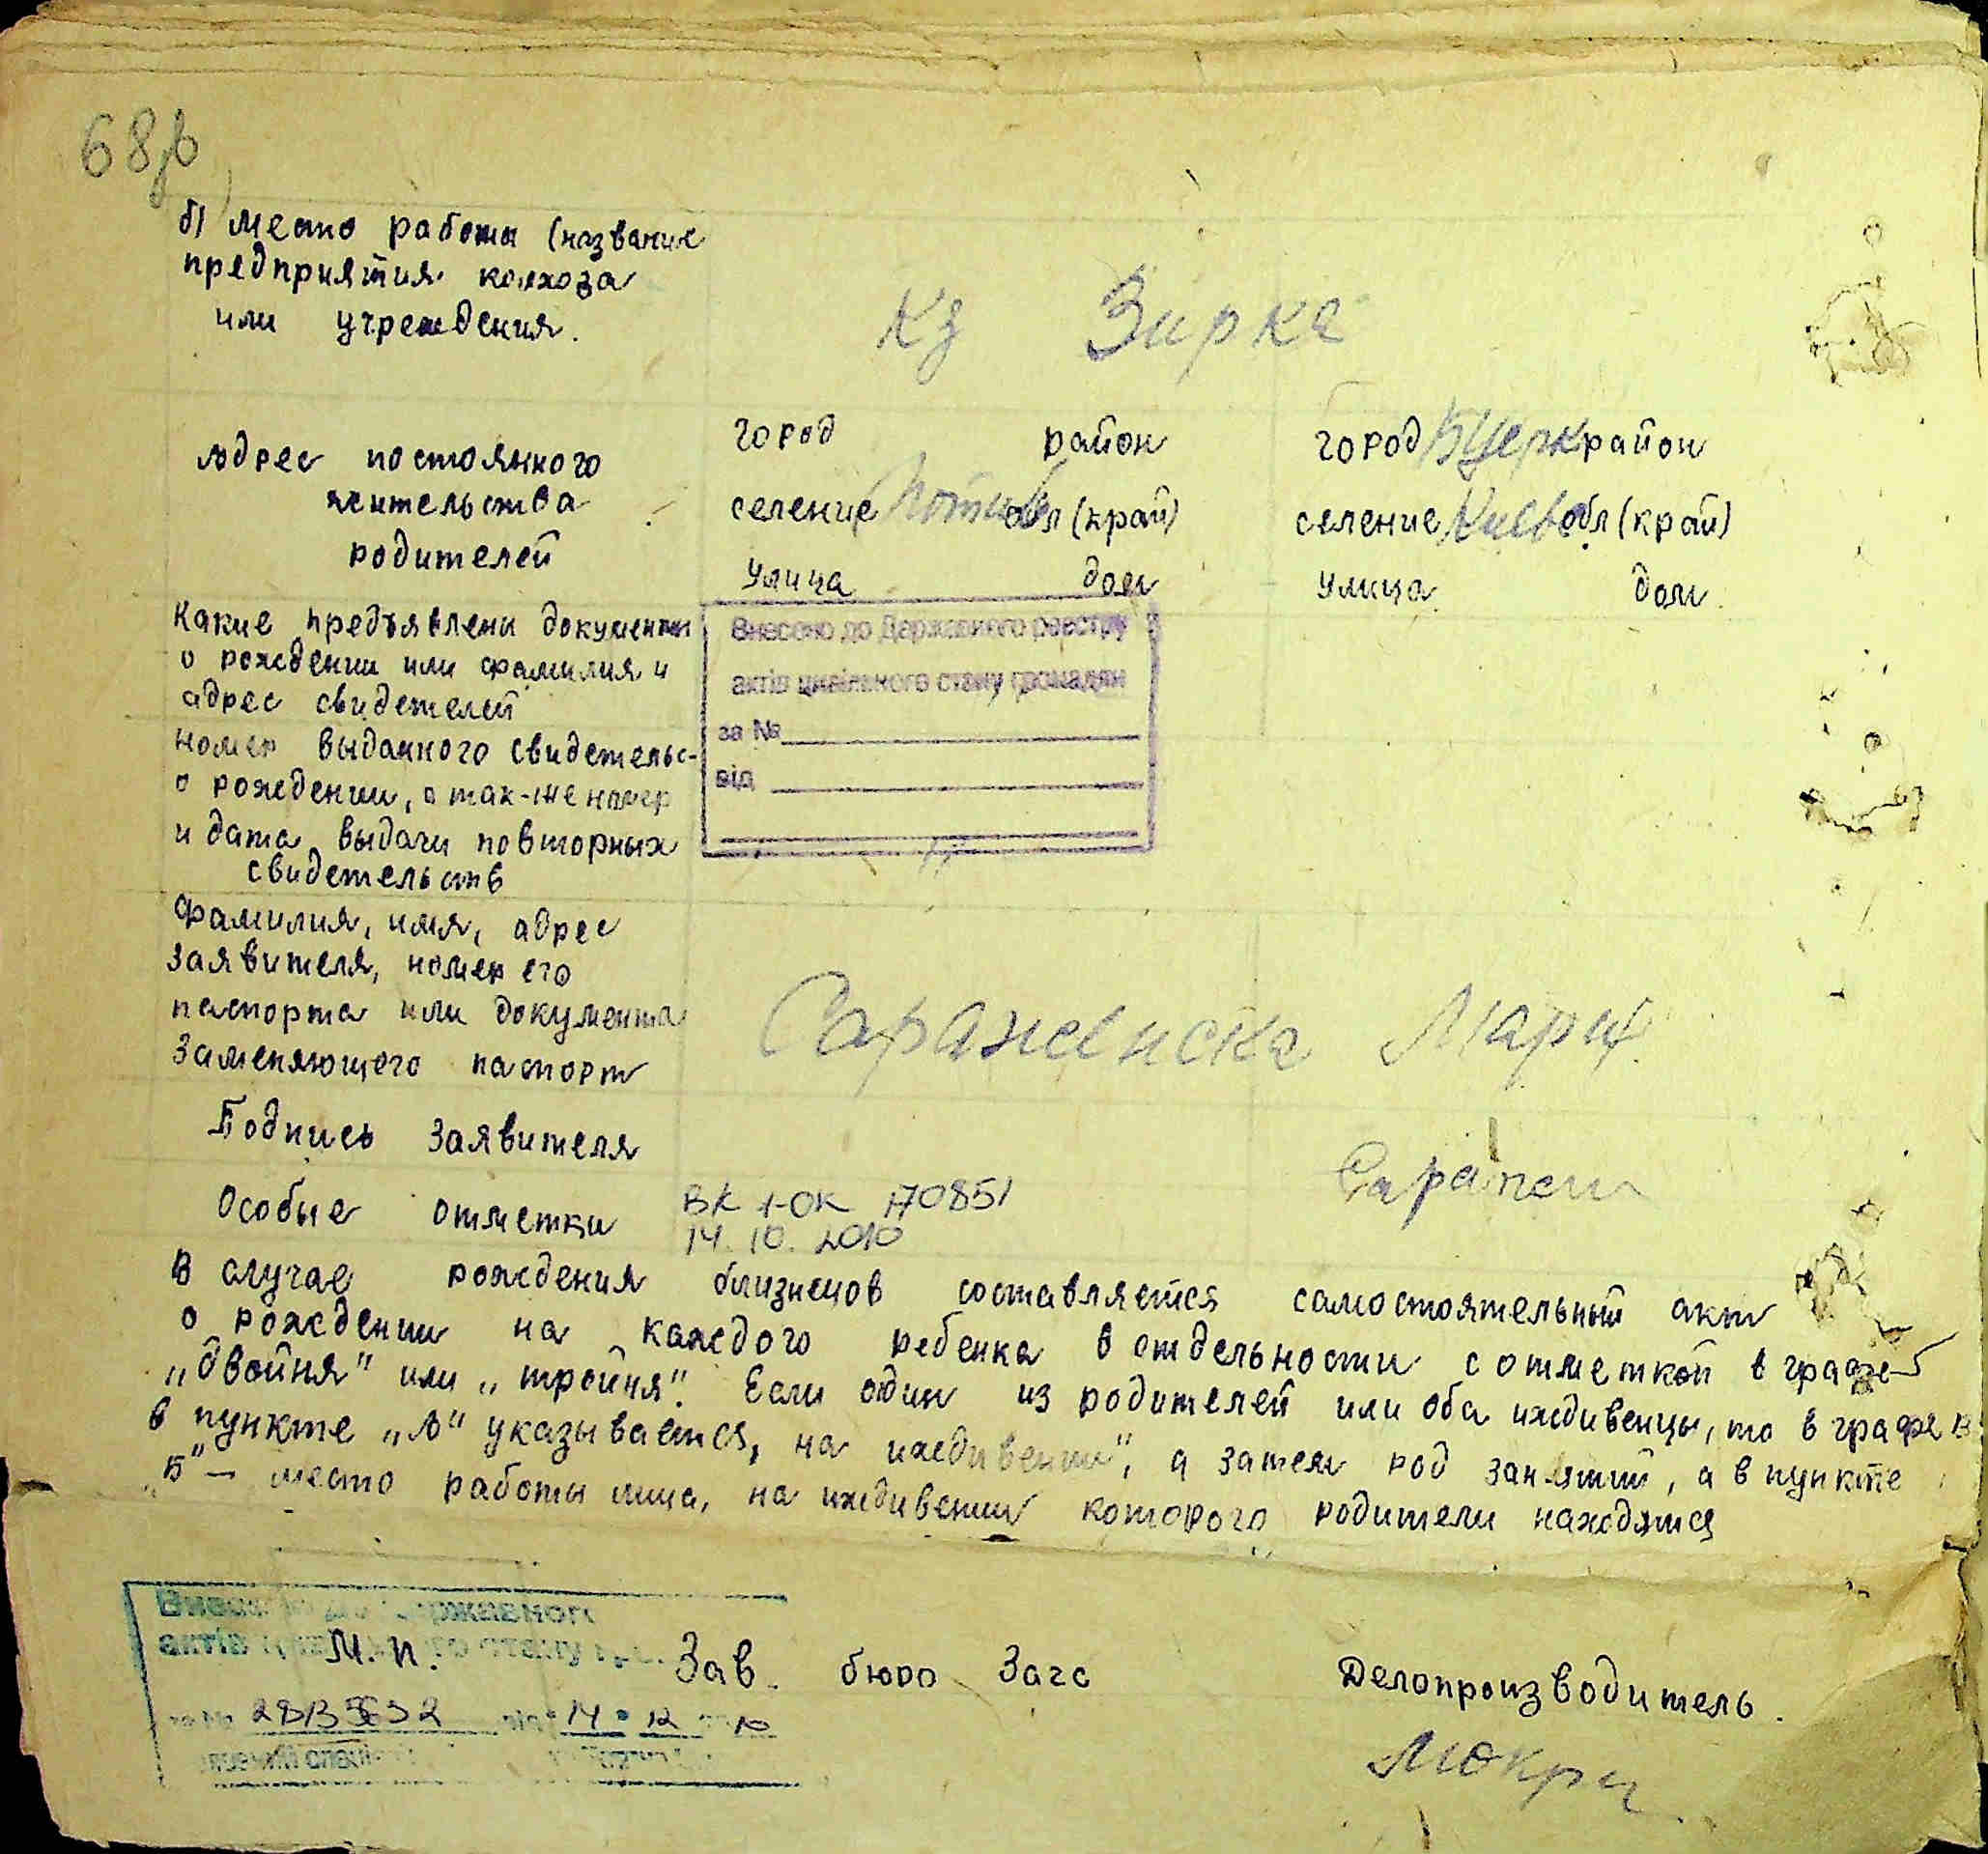 68
б) место работы (название
предприятия колхоза
или учреждения.
Кз Зирка
Адрес постоянного
жительства
родителей
город район
селение обл (край)
улица дом
город БЦерк район
селение Киев обл (край)
улица дом
Какие предъявлены документы
о рождении или фамилия и
адрес свидетелей
Внесено до Державного реєстру
актів цивільного стану громадян
за №
від
номер выданного свидетельс-
о рождении, а так-же номер
и дата выдачи повторных
свидетельств
Фамилия, имя, адрес
заявителя, номер его
паспорта или документа
заменяющего паспорт
Саражинска Мария
Подпись заявителя
Особые отметки
ВК 1-ОК 170851
14.10.2010
В случае рождения близнецов составляется самостоятельный акт
о рождении на каждого ребенка в отдельности с отметкой в графе 5
„двойня" или „тройня". Если один из родителей или оба иждивенцы, то в графе 13
в пункте „А" указывается, на иждивении", а затем род занятий, а в пункте
„Б" – место работы лица, на иждивении которого родители находятся
М. П. Зав. бюро Загс Делопроизводитель.
14 12 10